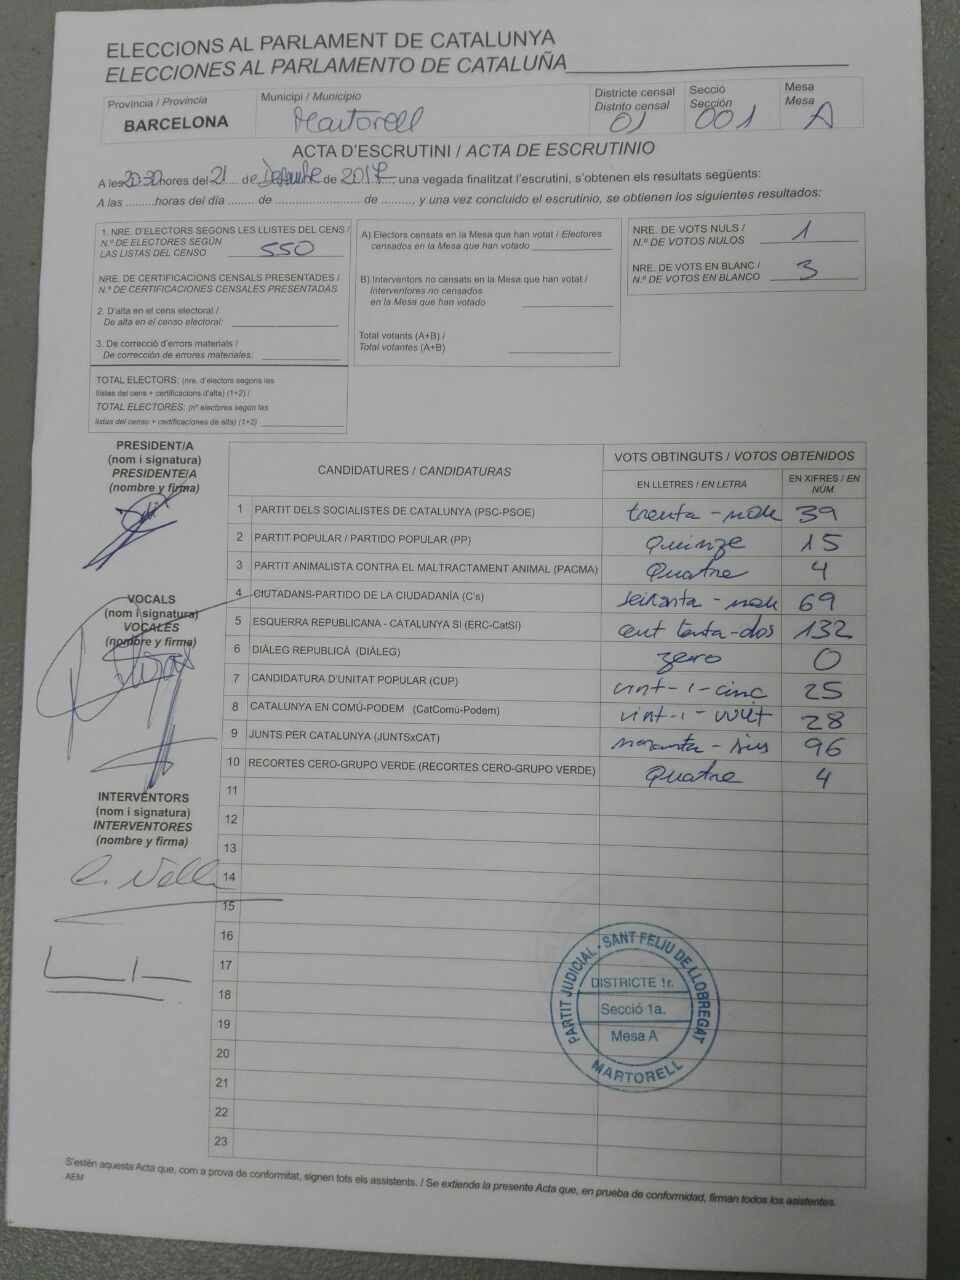 ELECCIONS AL PARLAMENT DE CATALUNYA
ELECCIONES AL PARLAMENTO DE CATALUÑA
Província / Provincia
BARCELONA
Municipi / Municipio
Martorell
Districte censal
Distrito censal
01
Secció
Sección
001
Mesa
Mesa
A
ACTA D'ESCRUTINI / ACTA DE ESCRUTINIO
A les 20:30 hores del 21 de Desembre de 2017, una vegada finalitzat l'escrutini, s'obtenen els resultats següents:
A las .........horas del día ........ de ......................... de ........., y una vez concluido el escrutinio, se obtienen los siguientes resultados:
1. NRE. D'ELECTORS SEGONS LES LLISTES DEL CENS /
N.º DE ELECTORES SEGÚN
LAS LISTAS DEL CENSO 550
NRE. DE CERTIFICACIONS CENSALS PRESENTADES /
N.º DE CERTIFICACIONES CENSALES PRESENTADAS
2. D'alta en el cens electoral /
De alta en el censo electoral:
3. De correcció d'errors materials /
De corrección de errores materiales:
TOTAL ELECTORS: (nre. d'electors segons les
llistes del cens + certificacions d'alta) (1+2) /
TOTAL ELECTORES: (nº electores según las
listas del censo + certificaciones de alta) (1+2)
A) Electors censats en la Mesa que han votat / Electores
censados en la Mesa que han votado
B) Interventors no censats en la Mesa que han votat /
Interventores no censados
en la Mesa que han votado
Total votants (A+B) /
Total votantes (A+B)
NRE. DE VOTS NULS /
N.º DE VOTOS NULOS 1
NRE. DE VOTS EN BLANC /
N.º DE VOTOS EN BLANCO 3
PRESIDENT/A
(nom i signatura)
PRESIDENTE/A
(nombre y firma)
VOCALS
(nom i signatura)
VOCALES
(nombre y firma)
INTERVENTORS
(nom i signatura)
INTERVENTORES
(nombre y firma)
CANDIDATURES / CANDIDATURAS
VOTS OBTINGUTS / VOTOS OBTENIDOS
EN LLETRES / EN LETRA
EN XIFRES / EN NÚM.
1 PARTIT DELS SOCIALISTES DE CATALUNYA (PSC-PSOE) trenta-nou 39
2 PARTIT POPULAR / PARTIDO POPULAR (PP) Quinze 15
3 PARTIT ANIMALISTA CONTRA EL MALTRACTAMENT ANIMAL (PACMA) Quatre 4
4 CIUTADANS-PARTIDO DE LA CIUDADANÍA (C's) seixanta-nou 69
5 ESQUERRA REPUBLICANA - CATALUNYA SI (ERC-CatSí) cent trenta-dos 132
6 DIÀLEG REPUBLICÀ (DIÀLEG) zero 0
7 CANDIDATURA D'UNITAT POPULAR (CUP) vint-i-cinc 25
8 CATALUNYA EN COMÚ-PODEM (CatComú-Podem) vint-i-vuit 28
9 JUNTS PER CATALUNYA (JUNTSxCAT) noranta-sis 96
10 RECORTES CERO-GRUPO VERDE (RECORTES CERO-GRUPO VERDE) Quatre 4
11
12
13
14
15
16
17
18
19
20
21
22
23
PARTIT JUDICIAL - SANT FELIU DE LLOBREGAT
DISTRICTE 1r.
Secció 1a.
Mesa A
MARTORELL
S'estén aquesta Acta que, com a prova de conformitat, signen tots els assistents. / Se extiende la presente Acta que, en prueba de conformidad, firman todos los asistentes.
AEM